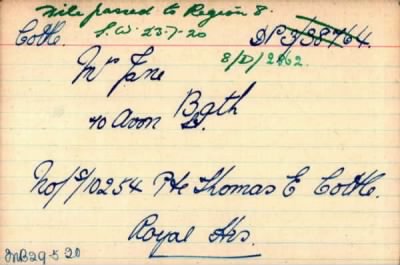 File passed to Region 8.
S.W. 23-7-20
Cottle.
DP3/38764.
8/D/2462.
Mrs Jane
40 Avon
Bath
No/S/10254 Pte Thomas E Cottle.
Royal Hrs.
JMB 29-5-20